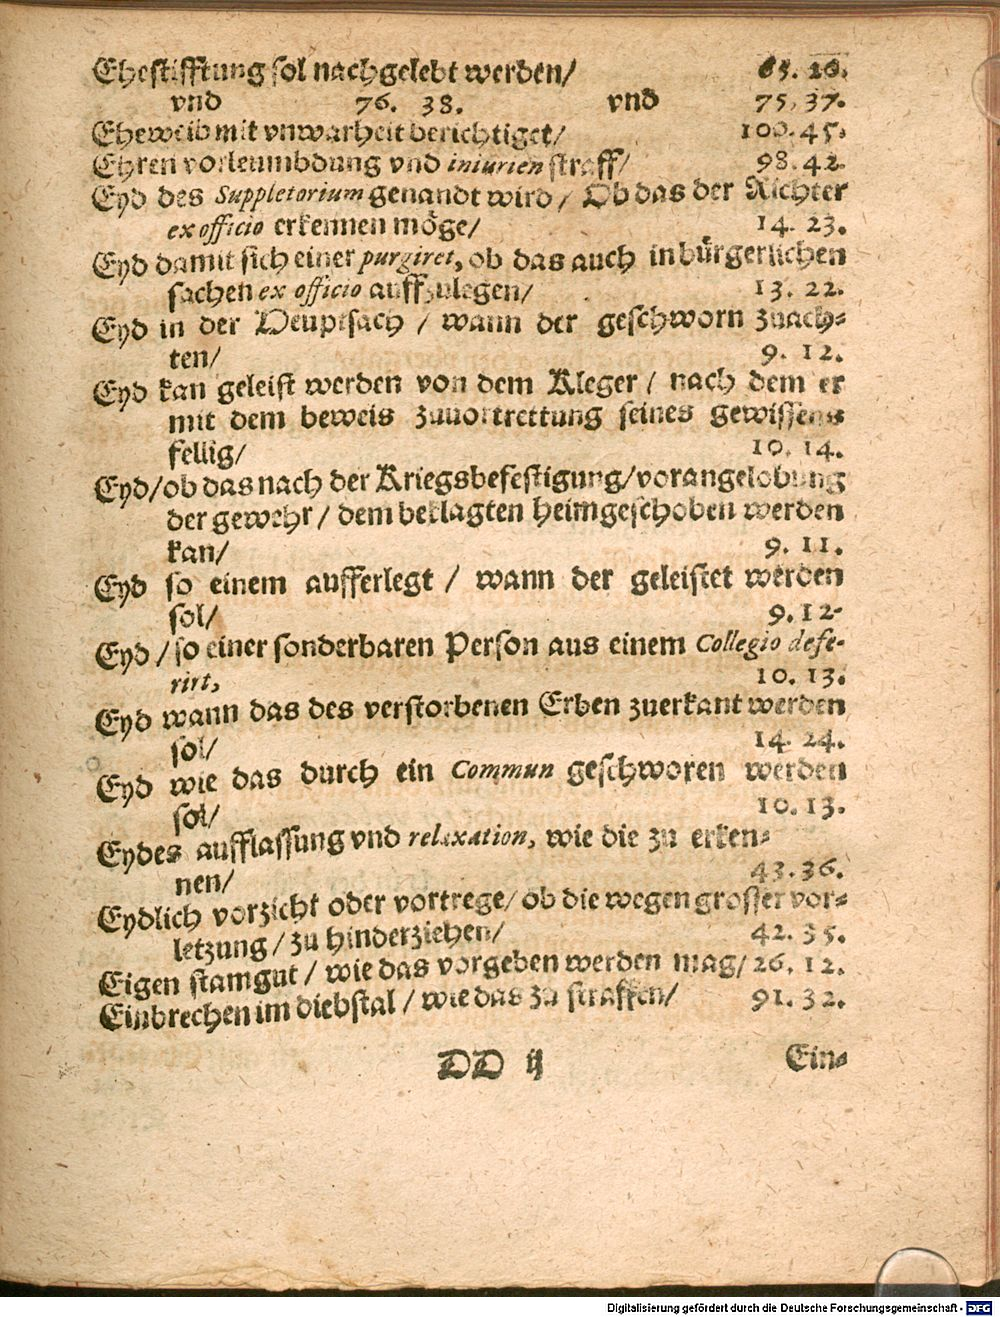 Ehestifftung sol nachgelebt werden/ 65. 26.
vnd 76. 38. vnd 75. 37.
Eheweib mit vnwarheit berichtiget/ 100. 45.
Ehren vorleumbdung vnd iniurien straff/ 98. 42.
Eyd des Suppletorium genandt wird/ Ob das der Richter
ex officio erkennen möge/ 14. 23.
Eyd damit sich einer purgiret, ob das auch in bürgerlichen
sachen ex officio auffzulegen/ 13. 22.
Eyd in der Heuptsach / wann der geschworn zuach-
ten/ 9. 12.
Eyd kan geleist werden von dem Kleger / nach dem er
mit dem beweis zuuortrettung seines gewissens
fellig/ 10. 14.
Eyd/ ob das nach der Kriegsbefestigung/ vorangelobung
der gewehr / dem beklagten heimgeschoben werden
kan/ 9. 11.
Eyd so einem aufferlegt / wann der geleistet werden
sol/ 9. 12.
Eyd / so einer sonderbaren Person aus einem Collegio defe-
rirt, 10. 13.
Eyd wann das des verstorbenen Erben zuerkant werden
sol/ 14. 24.
Eyd wie das durch ein Commun geschworen werden
sol/ 10. 13.
Eydes aufflassung vnd relaxation, wie die zu erken-
nen/ 43. 36.
Eydlich vorzicht oder vortrege/ ob die wegen grosser vor-
letzung / zu hinderziehen/ 42. 35.
Eigen stamgut / wie das vorgeben werden mag/ 26. 12.
Einbrechen im diebstal / wie das zu straffen/ 91. 32.
DD ij Ein-
Digitalisierung gefördert durch die Deutsche Forschungsgemeinschaft - DFG